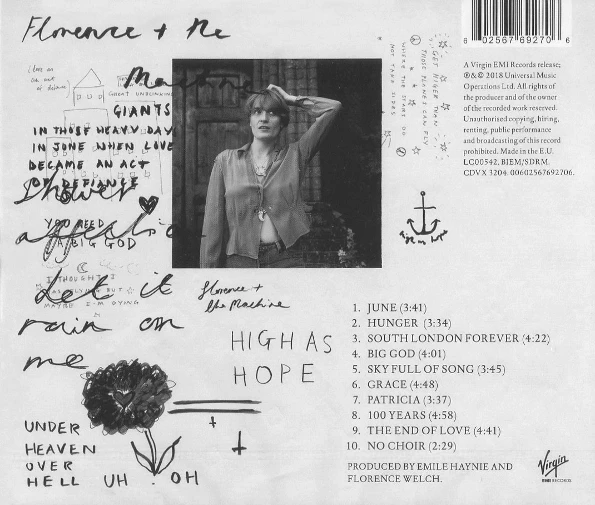 Florence + the
Machine
GIANTS
IN THOSE HEAVY DAYS
IN JUNE WHEN LOVE
BECAME AN ACT
OF DEFIANCE
Shower
YOU NEED
A BIG GOD
affection
I THOUGHT I
WAS FLYING BUT
MAYBE I'M DYING
Let it
rain on
me
UNDER
HEAVEN
OVER
HELL UH . OH
florence +
the Machine
HIGH AS
HOPE
GET HIGHER THAN
THOSE PLANES CAN FLY
WHERE THE STARS DO
NOT TAKE SIDES
6 02567 69270 6
A Virgin EMI Records release;
℗ & © 2018 Universal Music
Operations Ltd. All rights of
the producer and of the owner
of the recorded work reserved.
Unauthorised copying, hiring,
renting, public performance
and broadcasting of this record
prohibited. Made in the E.U.
LC00542. BIEM/SDRM.
CDVX 3204. 00602567692706.
1. JUNE (3:41)
2. HUNGER (3:34)
3. SOUTH LONDON FOREVER (4:22)
4. BIG GOD (4:01)
5. SKY FULL OF SONG (3:45)
6. GRACE (4:48)
7. PATRICIA (3:37)
8. 100 YEARS (4:58)
9. THE END OF LOVE (4:41)
10. NO CHOIR (2:29)
PRODUCED BY EMILE HAYNIE AND
FLORENCE WELCH.
Virgin
EMI RECORDS